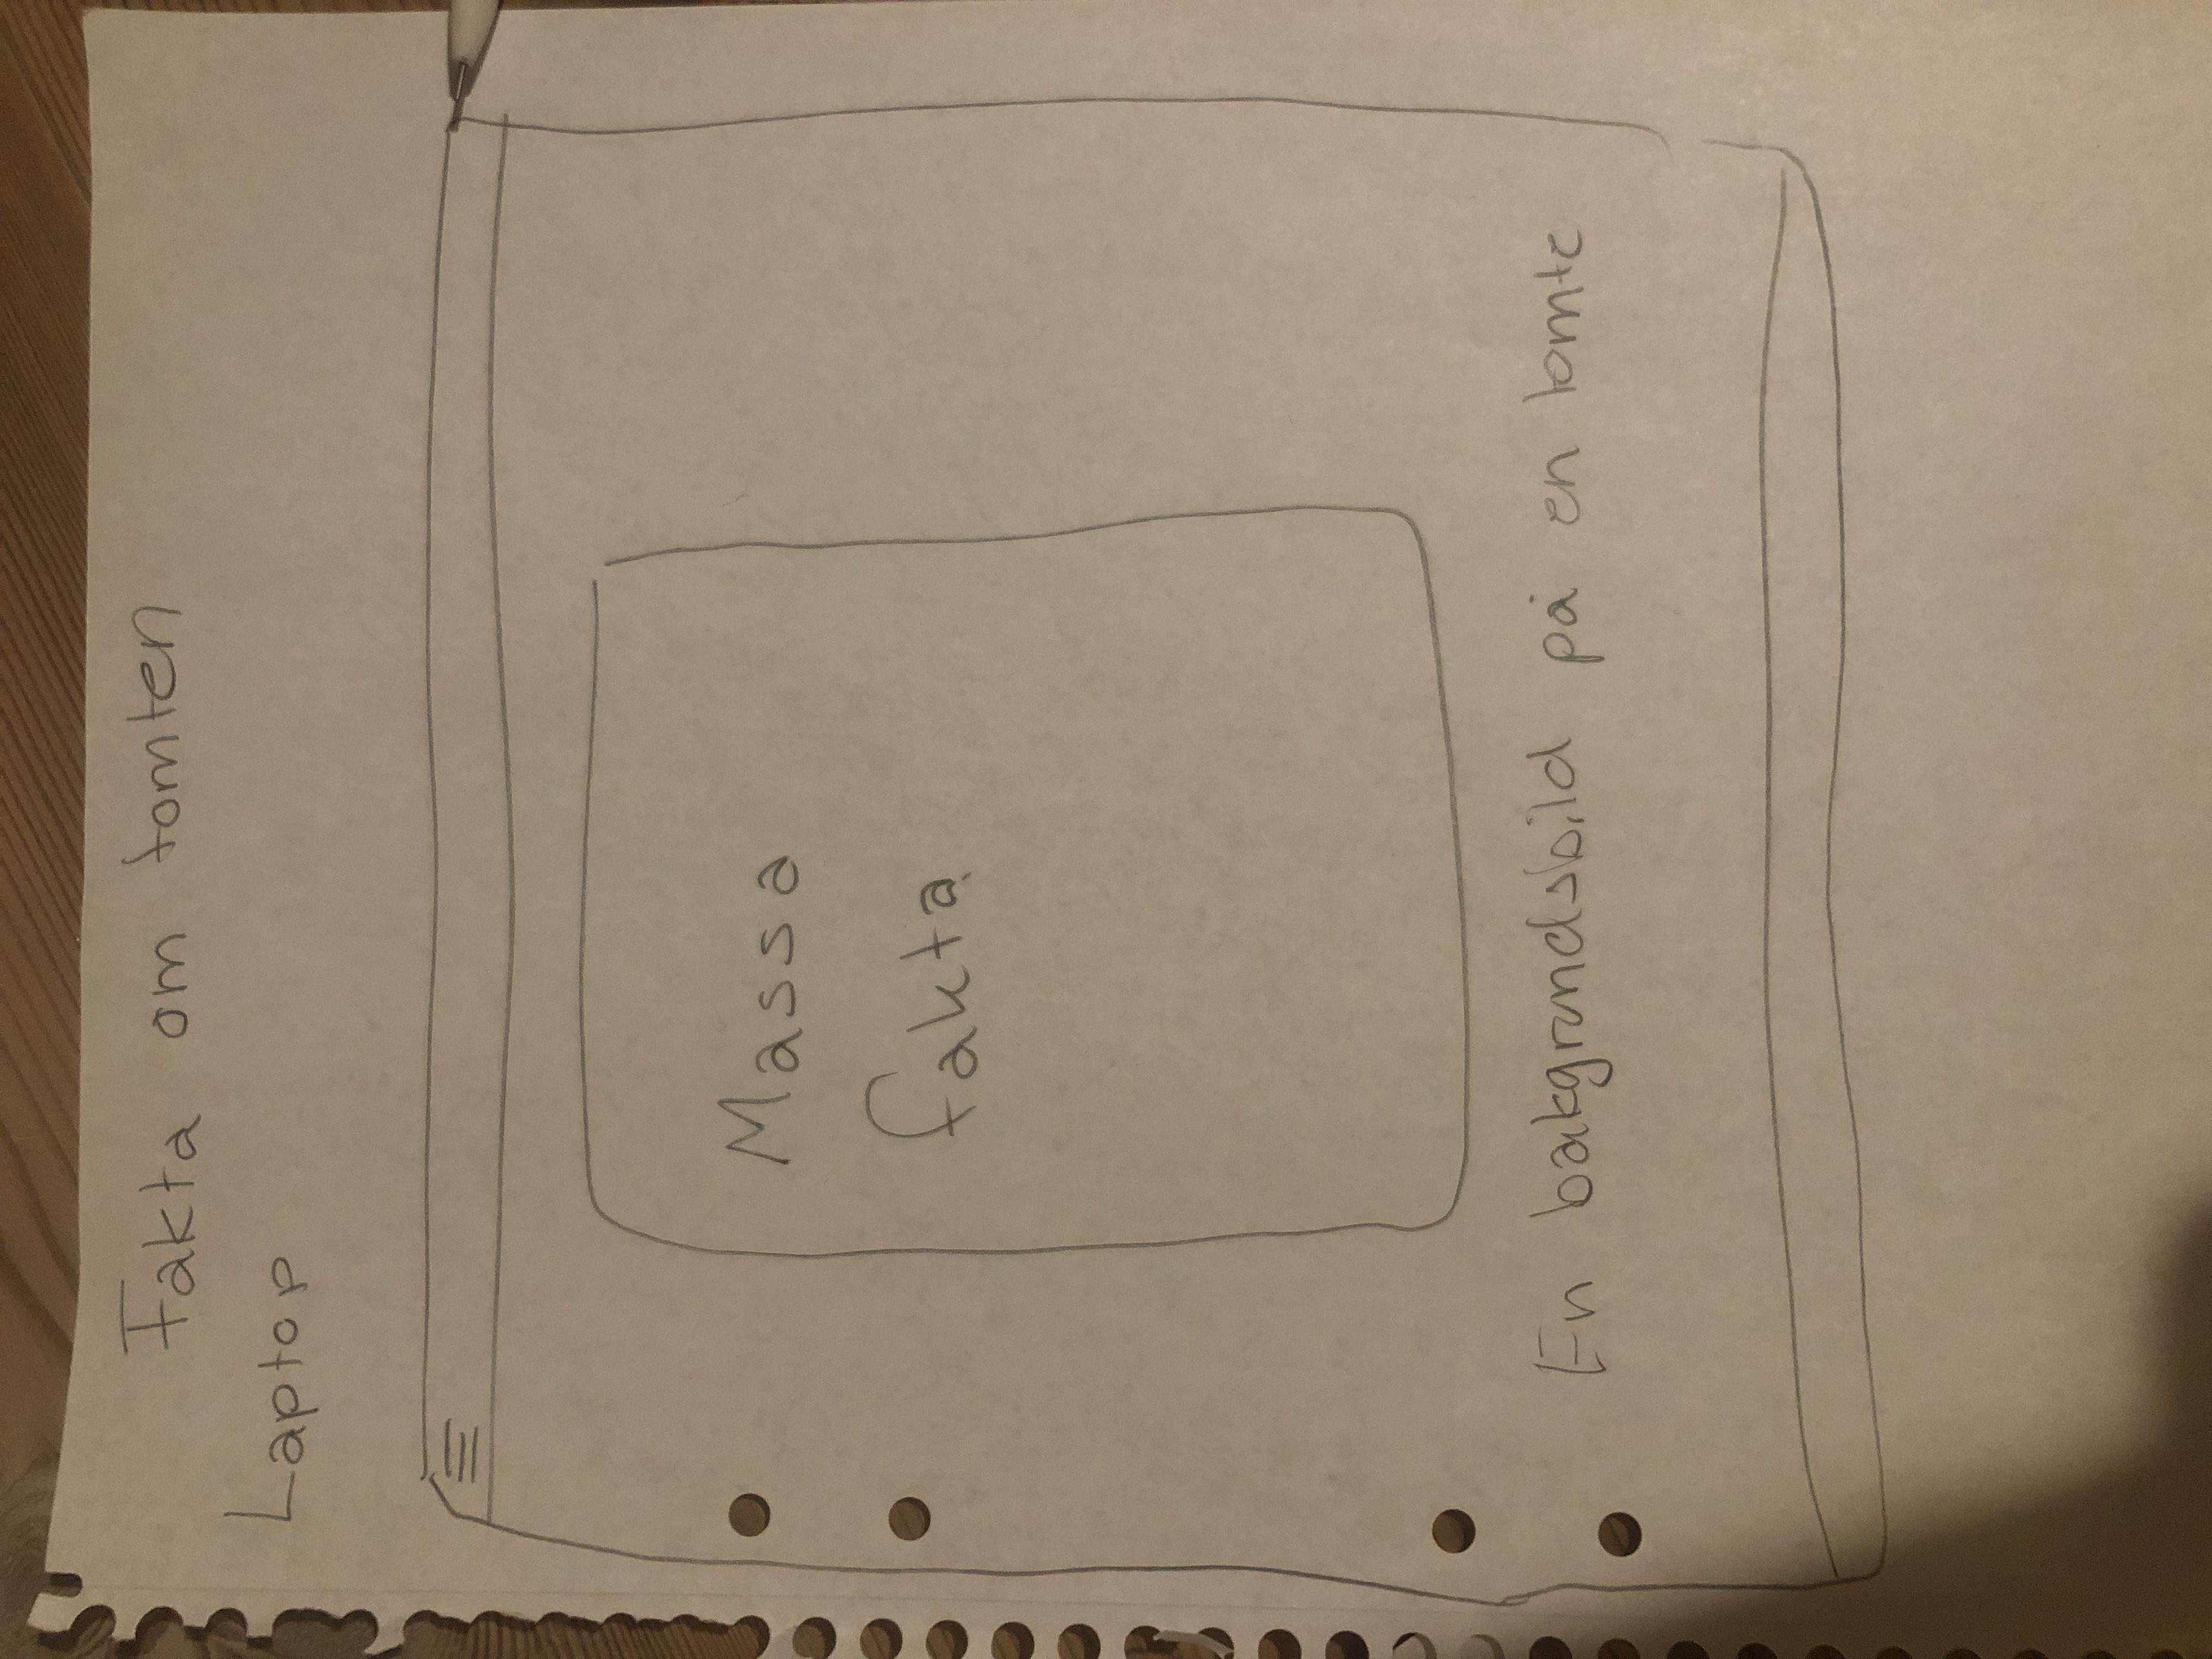 Fakta om tomten
Laptop
Massa
fakta
En bakgrundsbild på en tomte